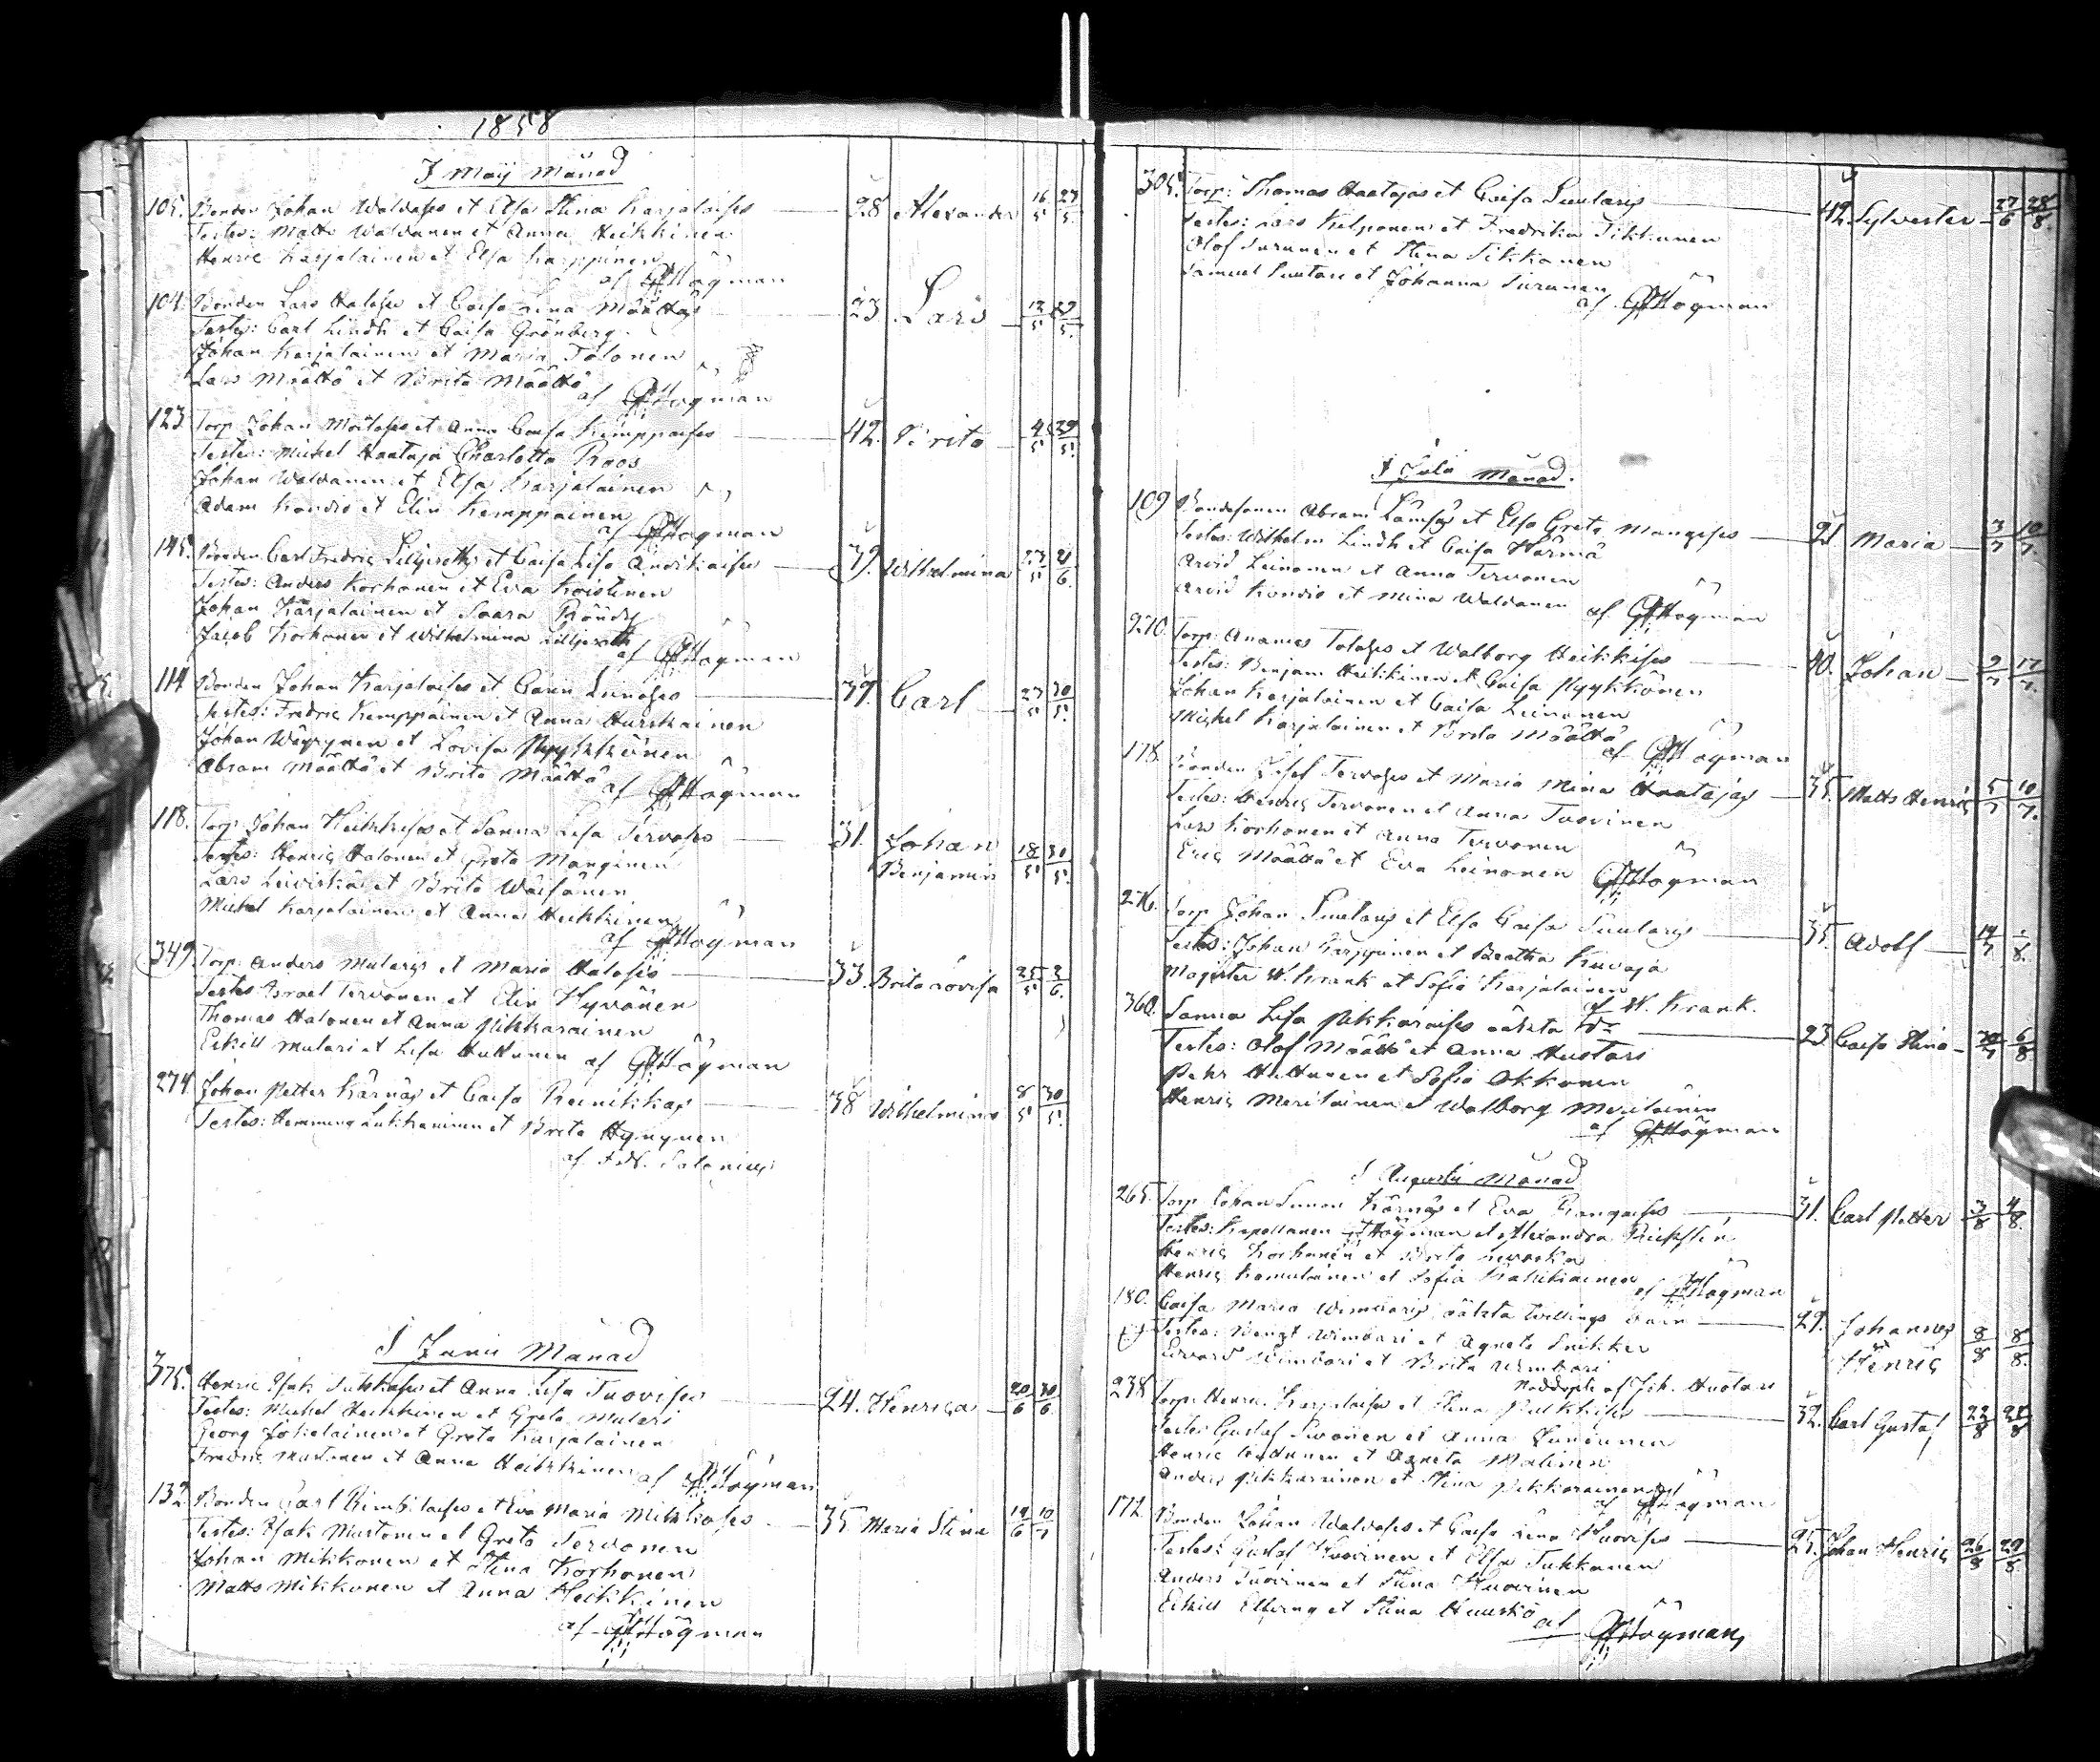 1858
I Maij Månad
105. Bonden Johan Waldases et Elsa Stina Karjalaises 28 Alexander 16/5 23/5
Testes: Matts Waldanen et Anna Heikkinen
Henric Karjalainen et Elsa Karppinen
af Högman
104. Bonden Lars et Caisa Lena Määttäs 23 Lars 12/5 29/5
Testes: Carl Lindh et Caisa Grönberg
Johan Karjalainen et Maria Tolonen
Lars Määttä et Brita Määttä
af Högman
123 Torp. Johan et Anna Caisa Kemppaises 42. Brita 4/5 29/5
Testes: Michel Haataja Charlotta Roos
Johan Waldanen et Elsa Karjalainen
Adam Kondio et Elin Kemppainen
af Högman
145. Bonden Carl Fredric et Caisa Lisa 39. Wilhelmina 23/5 21/6
Testes: Anders Korhonen et Eva Koistinen
Johan Karjalainen et Saara
Jacob Korhonen et Wilhelmina
af Högman
114 Bonden Johan Karjalaises et Carin Leinoses 39. Carl 23/5 30/5
Testes: Fredric Kemppainen et Anna Hurskainen
Johan Wäyrynen et Lovisa Pyykkönen
Abram Määttä et Brita Määttä
af Högman
118. Torp. Johan Heikkises et Sanna Lisa Tervoses 31. Johan
Benjamin 18/5 30/5
Testes: Henric Halonen et Greta Manginen
Lars Leiviskä et Brita Wäisänen
Michel Karjalainen et Anna Heikkinen
af Högman
349. Torp. Anders Mularis et Maria Haloses 33. Brita Lovisa 25/5 3/6
Testes Israel Tervonen et Elin Hyvönen
Thomas Halonen et Anna Pikkarainen
Eskill Mulari et Lisa Huttunen af Högman
274 Johan Petter Kärnäs et Caisa Reinikkas 38 Wilhelmina 8/5 30/5
Testes: Hemming et Brita Hynynen
af
I Junii Månad
375. Henric Isak et Anna Lisa Tuovises 24. Henrica 20/6 30/6
Testes: Michel Heikkinen et Greta Mulari
Georg et Greta Karjalainen
Fredric Mustonen et Anna Heikkinen af Högman
132 Bonden Carl et Eva Maria Mikkoses 35 Maria Stina 19/6 10/7
Testes: Isak Mustonen et Greta Tervonen
Johan Mikkonen et Stina Korhonen
Matts Mikkonen et Anna Heikkinen
af Högman
305. Torp: Thomas Haatajas et Caisa Suutaris 42. Sylvester 27/6 28/8
Testes: Lars Kelponen et Fredrika Tikkanen
Olof Surunen et Stina Tikkanen
Samuel Suutari et Johanna Surunen
af Högman
I Julii Månad.
109 Bondesonen Abram Lämsäs et Elsa Greta Mangises 21 Maria 3/7 10/7
Testes: Wilhelm Lindh et Caisa Härmä
Arvid Leinonen et Anna Tervonen
Arvid Kondio et Mina Waldanen af Högman
270. Torp. Ananias Toloses et Walborg Heikkises 40. Johan 9/7 17/7
Testes: Benjam Heikkinen et Caisa Pyykkönen
Johan Karjalainen et Caisa Leinonen
Michel Karjalainen et Brita Määttä
af Högman
178. Bonden Josef Tervoses et Maria Mina Haatajas 35. Matts Henric 5/7 10/7
Testes: Henric Tervonen et Anna Tuovinen
Lars Korhonen et Anna Tervonen
Eric Määttä et Eva Leinonen Högman
276. Torp. Johan Suutaris et Elsa Caisa Suutaris 35. Adolf
Testes: Johan Karppinen et Beatha Kuvaja
Magister W. Krank et Sofia Karjalainen
af W. Krank.
360. Sanna Lisa Pikkaraises oäkta 23 Caisa Stina 6/8
Testes: Olof Määttä et Anna Huotari
Pehr Huttunen et Sofia Okkonen
Henric Meriläinen et Walborg Meriläinen
af Högman
I Augusti Månad
265. Torp. Johan Simon Kärnäs et Eva Kangaises 31. Carl Petter 3/8 4/8
Testes: Kapellanen Högman et Alexandra
Henric Korhonen et Brita
Henric Komulainen et Sofia
af Högman
180. Caisa Maria Wimbaris oäkta tvillings barn 29. Johannes
Henric 8/8 8/8
Testes: Bengt Wimbari et Agneta Snikker
Edvard Wimbari et Brita Wimbari
Nöddöpte af Joh. Huotari
238 Torp: Henric Karjalaises et Stina Pulkkises 32. Carl Gustaf 22/8 28/8
Testes Gustaf et Anna
Henric Huttunen et Agneta Malinen
Anders Pikkarainen et Stina Pikkarainen
af Högman
172 Bonden Johan Waldases et Caisa Lena Huovises 25. Johan Henric 26/8 29/8
Testes: Gustaf Huovinen et Elsa Tukkanen
Anders Tuovinen et Stina Huovinen
Eskill et Stina
af Högman